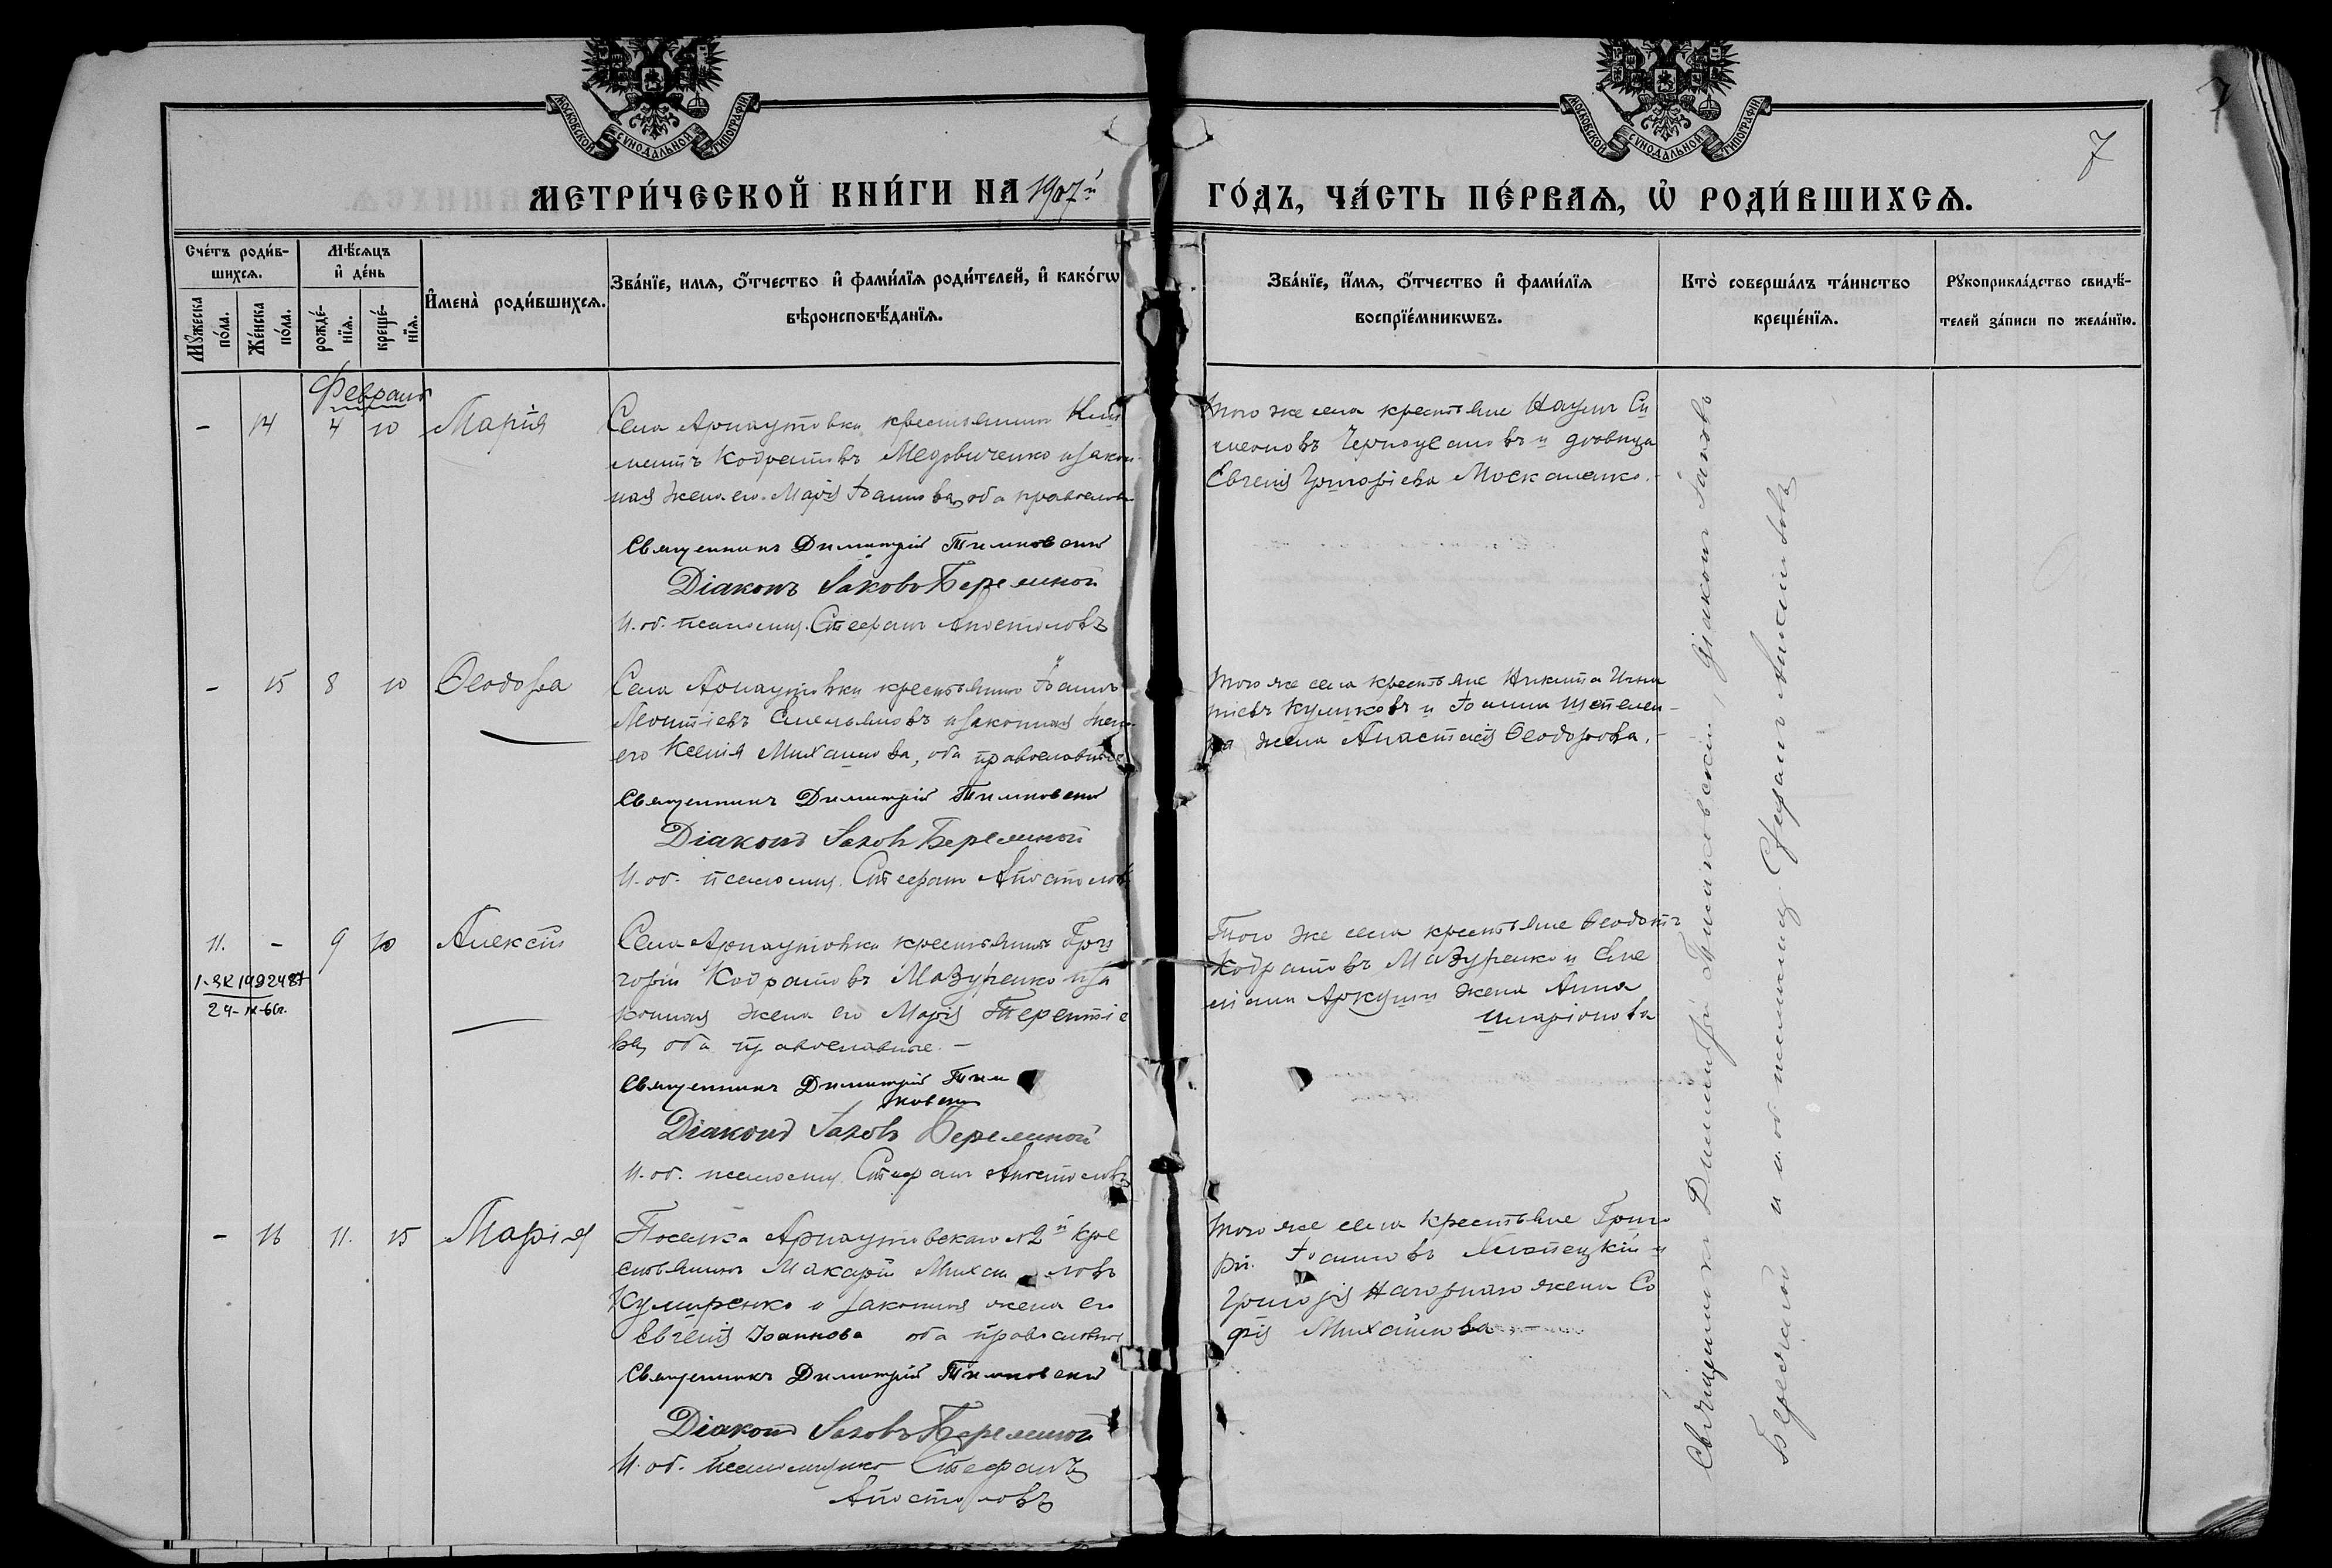 МОСКОВСКОЙ СѴНОДАЛЬНОЙ ТИПОГРАФІИ
МОСКОВСКОЙ СѴНОДАЛЬНОЙ ТИПОГРАФІИ
7
7
МЕТРИ́ЧЕСКОЙ КНИ́ГИ НА 1907й ГО́ДЪ, ЧА́СТЬ ПЕ́РВАѦ, Ѡ҆ РОДИ́ВШИХСѦ.
Сче́тъ роди́в-
шихсѧ.
Мꙋ́жеска
по́ла.
Же́нска
по́ла.
Мѣ́сѧцъ
и҆ де́нь
рожде́-
нїѧ.
креще́-
нїѧ.
И҆мена̀ роди́вшихсѧ.
Зва́нїе, имѧ, ѻ҆́тчество и҆ фами́лїѧ роди́телей, и҆ како́гѡ
вѣроисповѣ́данїѧ.
Зва́нїе, и҆́мѧ, ѻ҆́тчество и҆ фами́лїѧ
воспрїе́мникѡвъ.
Кто̀ соверша́лъ та́инство
креще́нїѧ.
Рꙋкоприкла́дство свидѣ́-
телей за́писи по жела́нїю.
Февраль
- 14 4 10 Марія
Села Арнаутовки крестьянинъ Кли
ментъ Кодратовъ Медовиченко и закон
ная жена его Марія Іоаннова, оба православн
Священникъ Димитрій Тимковскій
Діаконъ Іаковъ Бережной
И. об. псаломщ. Стефанъ Апостоловъ
Того же села крестьяне Наумъ Си
меоновъ и дѣвица
Евгенія Григорьева Москаленко.
- 15 8 10 Ѳеодора
Села Арнаутовки крестьянинъ Іоаннъ
Леонтіевъ Емельяновъ и законная жена
его Ксенія Михаилова, оба православные
Священникъ Димитрій Тимковскій
Діаконъ Іаковъ Бережной
И. об. псаломщ. Стефанъ Апостоловъ
Того же села крестьяне Никита Игна
тіевъ Куликовъ и Іоанна
жена Анастасія Ѳеодорова.
11. - 9 10 Алексій
1-ЯК 1492487
24-IX-66г.
Села Арнаутовки крестьянинъ Гри
горій Кодратовъ Мазуренко и за
конная жена его Марія Терентіе
ва, оба православные. -
Священникъ Димитрій Тим
ковскій
Діаконъ Іаковъ Бережной
И. об. псаломщ. Стефанъ Апостоловъ
Того же села крестьяне Ѳеодотъ
Кодратовъ Мазуренко и Еме
ліана Аркуши жена Анна
Иларіонова
- 16 11. 15 Марія
Поселка Арнаутовскаго №2й кре
стьянинъ Макарій Михаиловъ
и законная жена его
Евгенія Іоаннова оба православные
Священникъ Димитрій Тимковскій
Діаконъ Іаковъ Бережной
И. об. псаломщика Стефанъ
Апостоловъ
Того же села крестьяне Григо
рій Іоанновъ Хлопецкій и
Григорія Нагорнаго жена Со
фія Михаилова. -
Священникъ Димитрій Тимковскій, діаконъ Іаковъ
Бережной и и. об. псаломщ. Стефанъ Апостоловъ